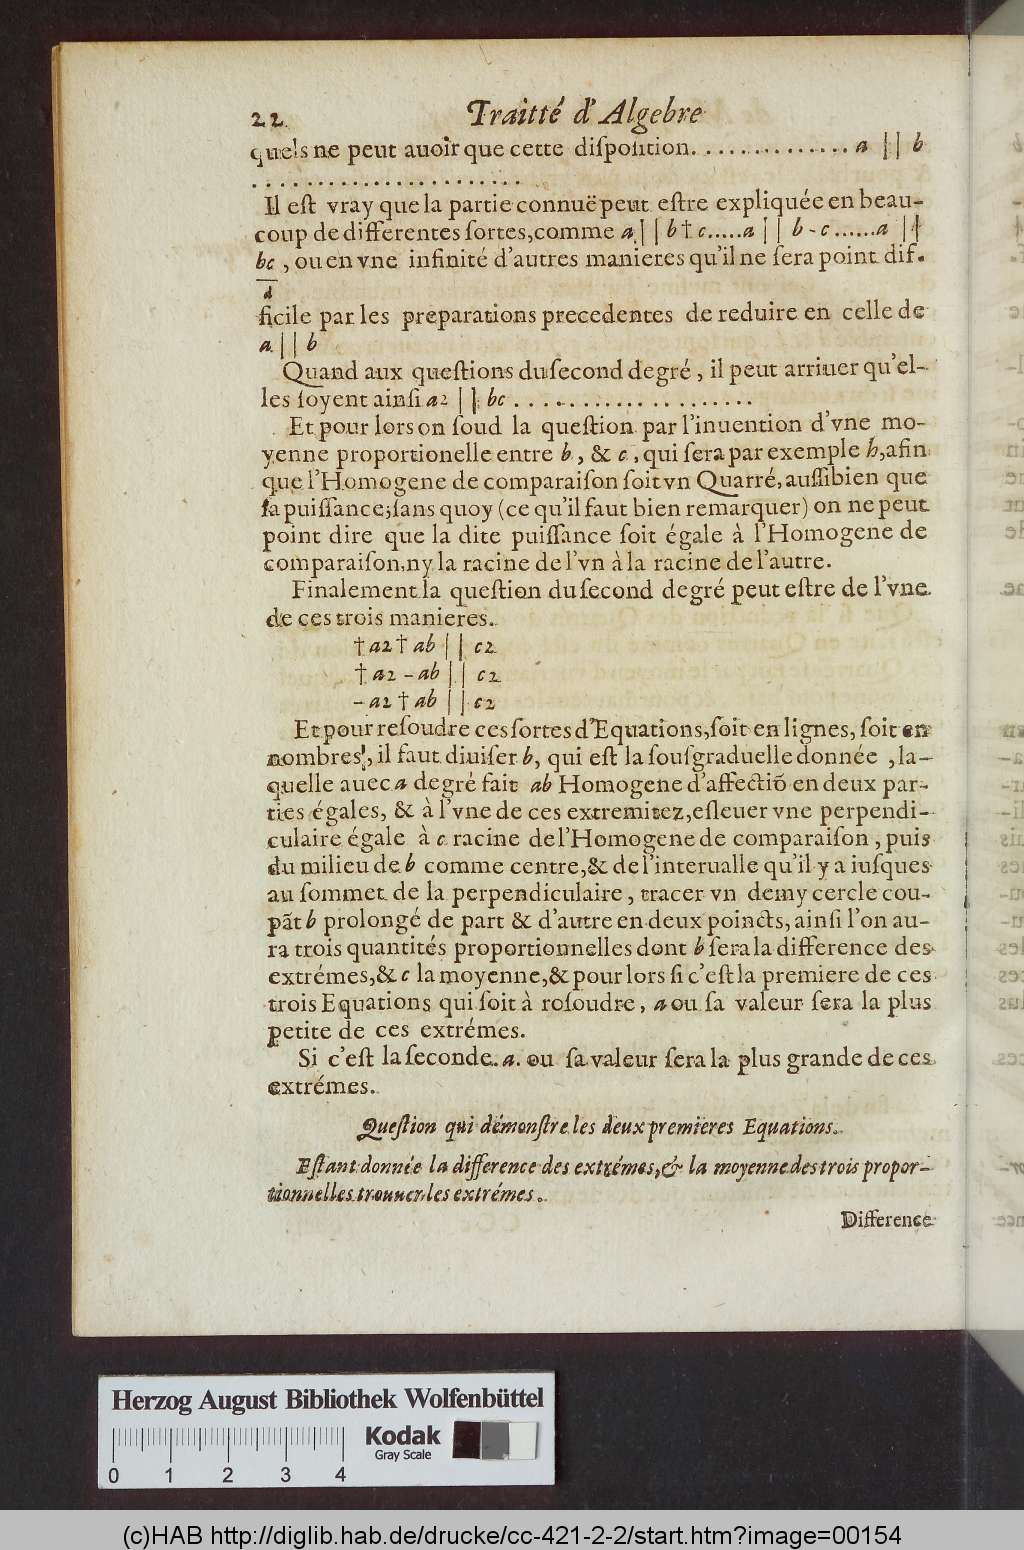 22. Traitté d'Algebre
quels ne peut auoir que cette diſpoſition. . . . . . . . . . . . . . . a || b
. . . . . . . . . . . . . . . . . . . . . .
Il eſt vray que la partie connuë peut eſtre expliquée en beau-
coup de differentes ſortes, comme a || b † c.....a || b - c......a ||
bc , ou en vne infinité d'autres manieres qu'il ne ſera point dif-
d
ficile par les preparations precedentes de reduire en celle de
a || b
Quand aux queſtions du ſecond degré , il peut arriuer qu'el-
les ſoyent ainſi a2 || bc . . . . . . . . . . . . . . . . . . . .
Et pour lors on ſoud la queſtion par l'inuention d'vne mo-
yenne proportionelle entre b , & c , qui ſera par exemple h, afin
que l'Homogene de comparaiſon ſoit vn Quarré, auſſibien que
ſa puiſſance; ſans quoy (ce qu'il faut bien remarquer) on ne peut
point dire que la dite puiſſance ſoit égale à l'Homogene de
comparaiſon, ny la racine de l'vn à la racine de l'autre.
Finalement la queſtion du ſecond degré peut eſtre de l'vne
de ces trois manieres.
† a2 † ab || c2
† a2 - ab || c2
- a2 † ab || c2
Et pour reſoudre ces ſortes d'Equations, ſoit en lignes, ſoit en
nombres, il faut diuiſer b, qui eſt la ſouſgraduelle donnée , la-
quelle auec a degré fait ab Homogene d'affectiõ en deux par-
ties égales, & à l'vne de ces extremitez, eſleuer vne perpendi-
culaire égale à c racine de l'Homogene de comparaiſon , puis
du milieu de b comme centre, & de l'interualle qu'il y a iuſques
au ſommet de la perpendiculaire , tracer vn demy cercle cou-
pãt b prolongé de part & d'autre en deux poincts, ainſi l'on au-
ra trois quantités proportionnelles dont b ſera la difference des
extrémes, & c la moyenne, & pour lors ſi c'eſt la premiere de ces
trois Equations qui ſoit à roſoudre , a ou ſa valeur ſera la plus
petite de ces extrémes.
Si c'eſt la ſeconde. a. ou ſa valeur ſera la plus grande de ces
extrémes.
Queſtion qui démonſtre les deux premieres Equations.
Eſtant donnée la difference des extrémes, & la moyenne des trois propor-
tionnelles trouuer les extrémes.
Difference
Herzog August Bibliothek Wolfenbüttel
Kodak
Gray Scale
0 1 2 3 4
(c)HAB http://diglib.hab.de/drucke/cc-421-2-2/start.htm?image=00154